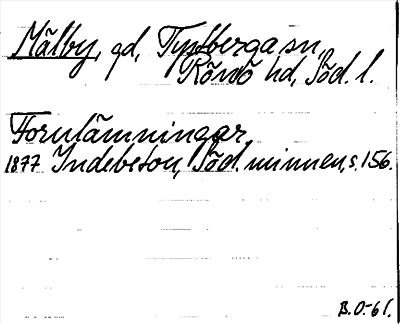 Mälby, gd, Tystberga sn,
Rönö hd, Söd. l.
Fornlämningar.
1877 Indebetou, Söd. minnen, s. 156.
B.O-61.